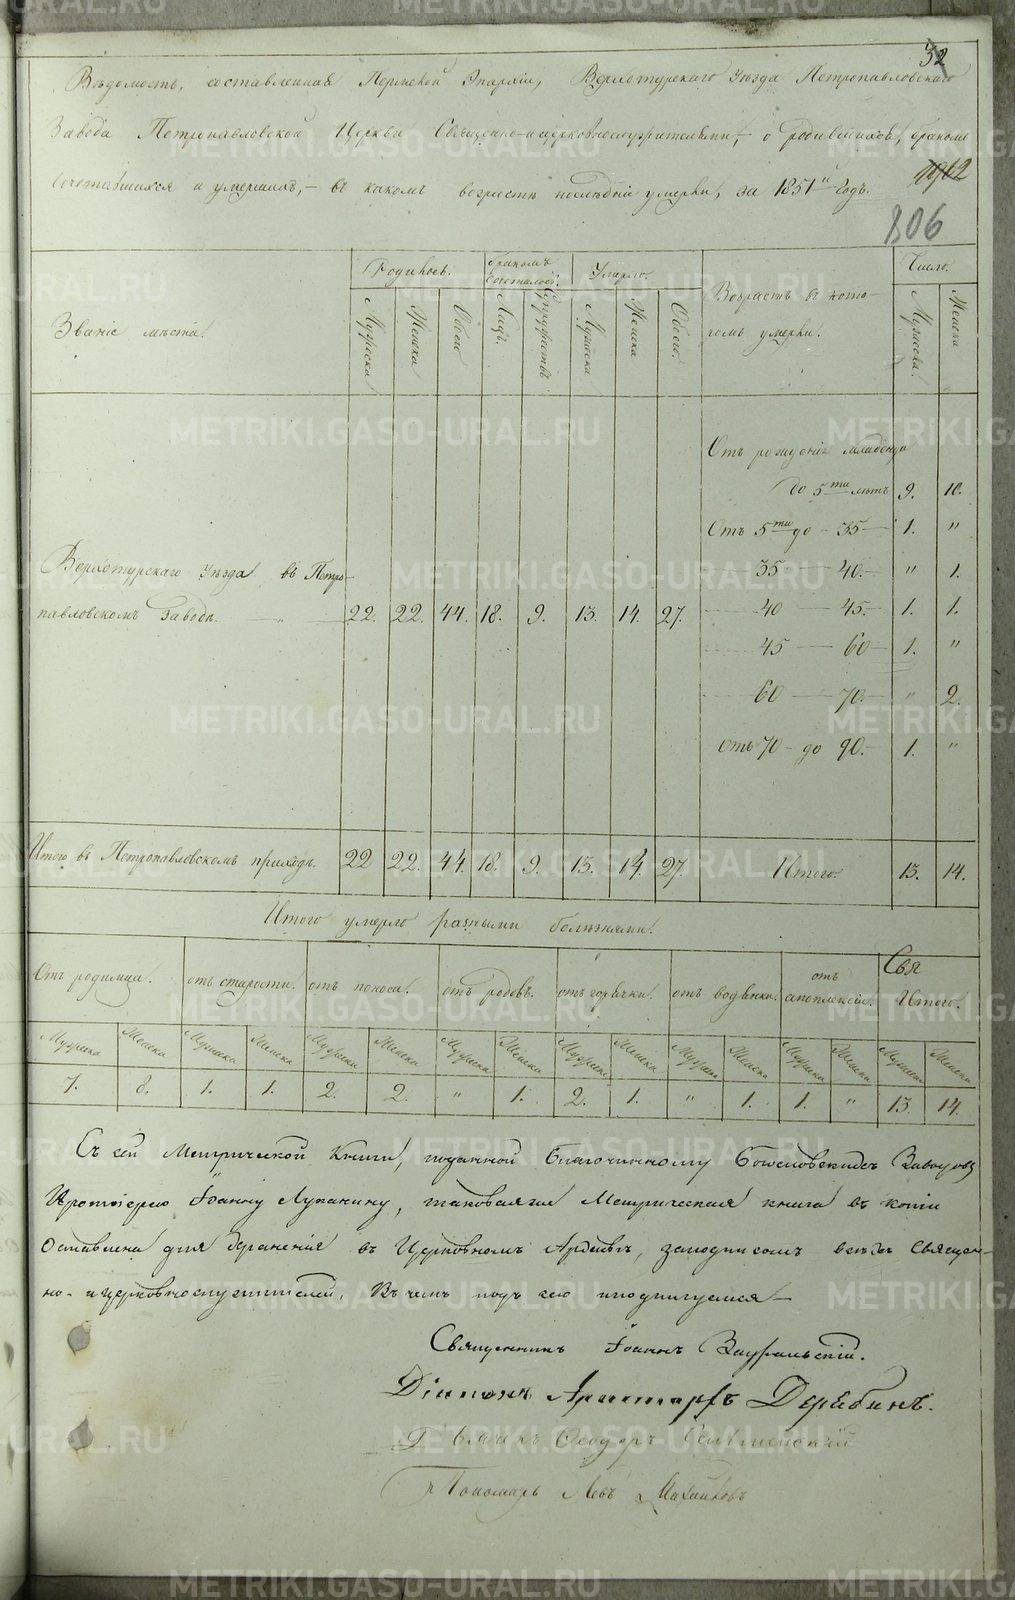 32
Вѣдомость, составленная Пермской Епархіи, Верхотурскаго Уѣзда Петропавловскаго
Завода Петропавловской Церкви Священно-и церковнослужителями, – о родившихся, бракомъ
сочетавшихся и умершихъ, – въ какомъ возрастѣ послѣдніе умерли, за 1851й годъ.
806
Званіе мѣста.
Родилось.
Бракомъ сочеталось.
Умерло.
Возрастъ въ кото-
ромъ умерли.
Число.
Мужеска
Женска
Обоего
Лицъ.
Супружествъ
Мужеска
Женска
Обоего.
Мужеска.
Женска
Отъ рожденія младенца
до 5ти лѣтъ 9. 10.
Отъ 5ти до – 35 — 1. "
35 — 40. — " 1.
40 — 45. — 1. 1.
45 — 60 — 1. "
60 — 70. — " 2.
отъ 70 – до 90. – 1. "
Верхотурскаго Уѣзда въ Петро-
павловскомъ Заводѣ. " 22. 22. 44. 18. 9. 13. 14. 27.
Итого въ Петропавловскомъ приходѣ. 22 22. 44. 18. 9. 13. 14. 27. Итого. 13. 14.
Итого умерло разными болѣзнями.
Отъ родимца. отъ старости. отъ поноса. отъ родовъ. отъ горячки. отъ водянки. отъ апоплексіи. Итого.
Мужеска Женска Мужеска Женска Мужеска Женска Мужеска Женска Мужеска Женска Мужеска Женска Мужеска Женска Мужеска Женска
7. 8. 1. 1. 2. 2. " 1. 2. 1. " 1. 1. " 13. 14.
Съ сей Метрической Книги, поданной Благочинному Богословскихъ Заводовъ
Протоіерею Іоанну Луканину, таковая же Метрическая книга въ копіи
оставлена для храненія въ Церковномъ Архивѣ, за подписомъ всѣхъ Священ-
но- и церковнослужителей, Въ чемъ подъ сею и подпишуемся —
Священникъ Іоаннъ Зауральскій.
Діаконъ Аристархъ Дерябинъ.
Дьячекъ Ѳеодоръ
Пономарь Левъ
METRIKI.GASO-URAL.RU